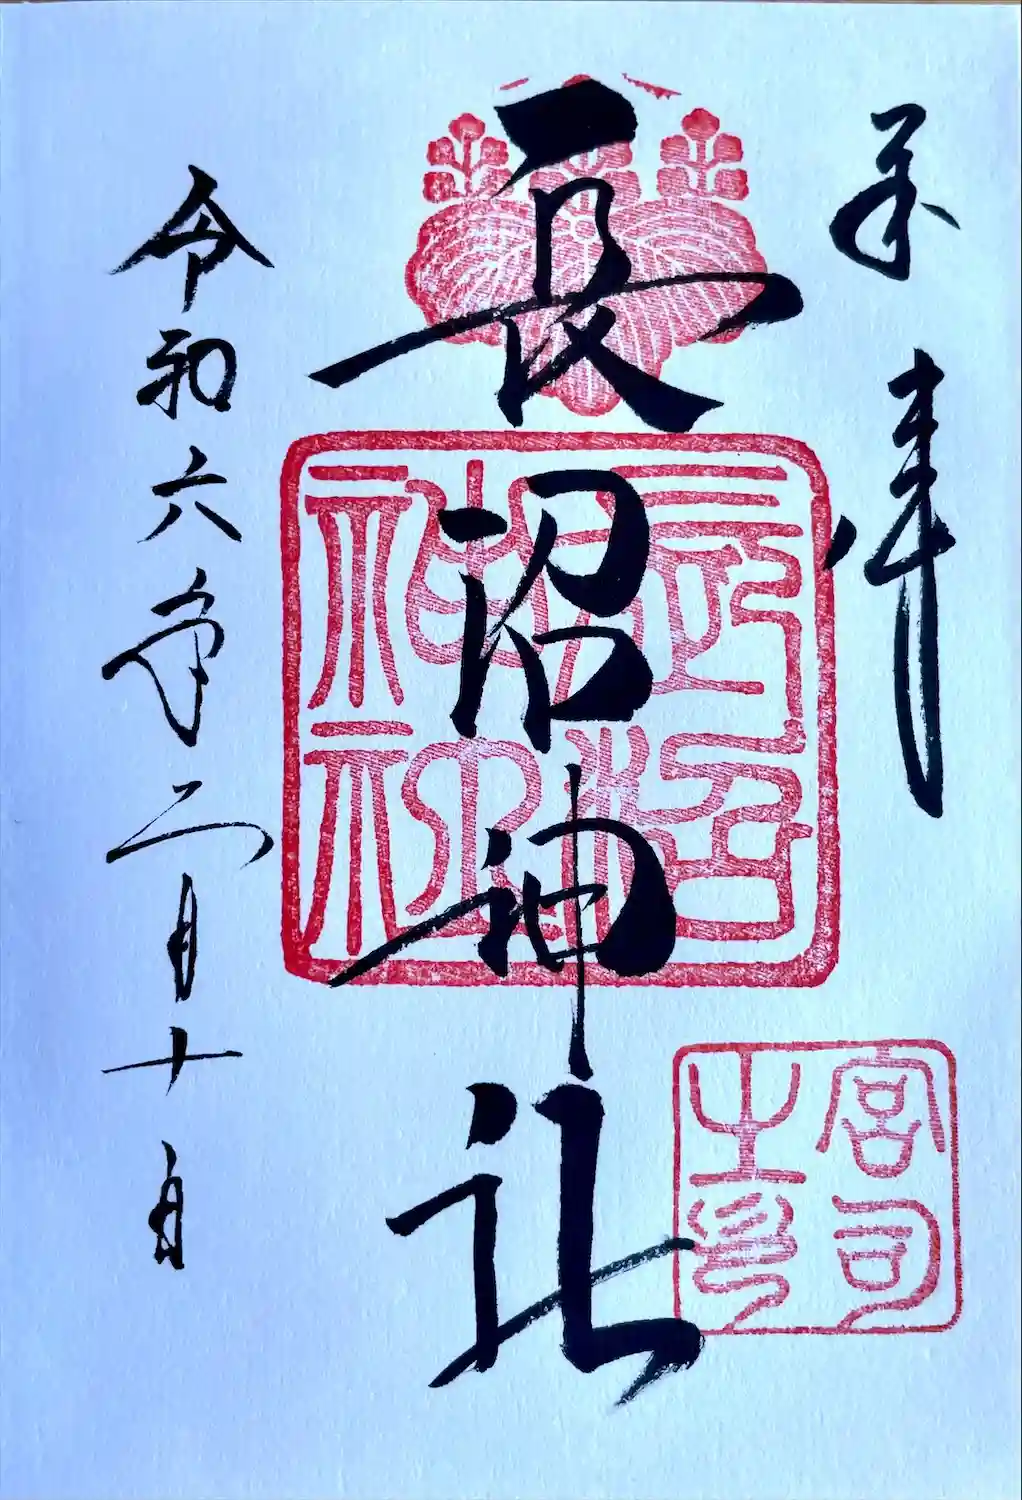 奉拝
長沼神社
令和六年二月十日
長沼
神社
宮司
之印